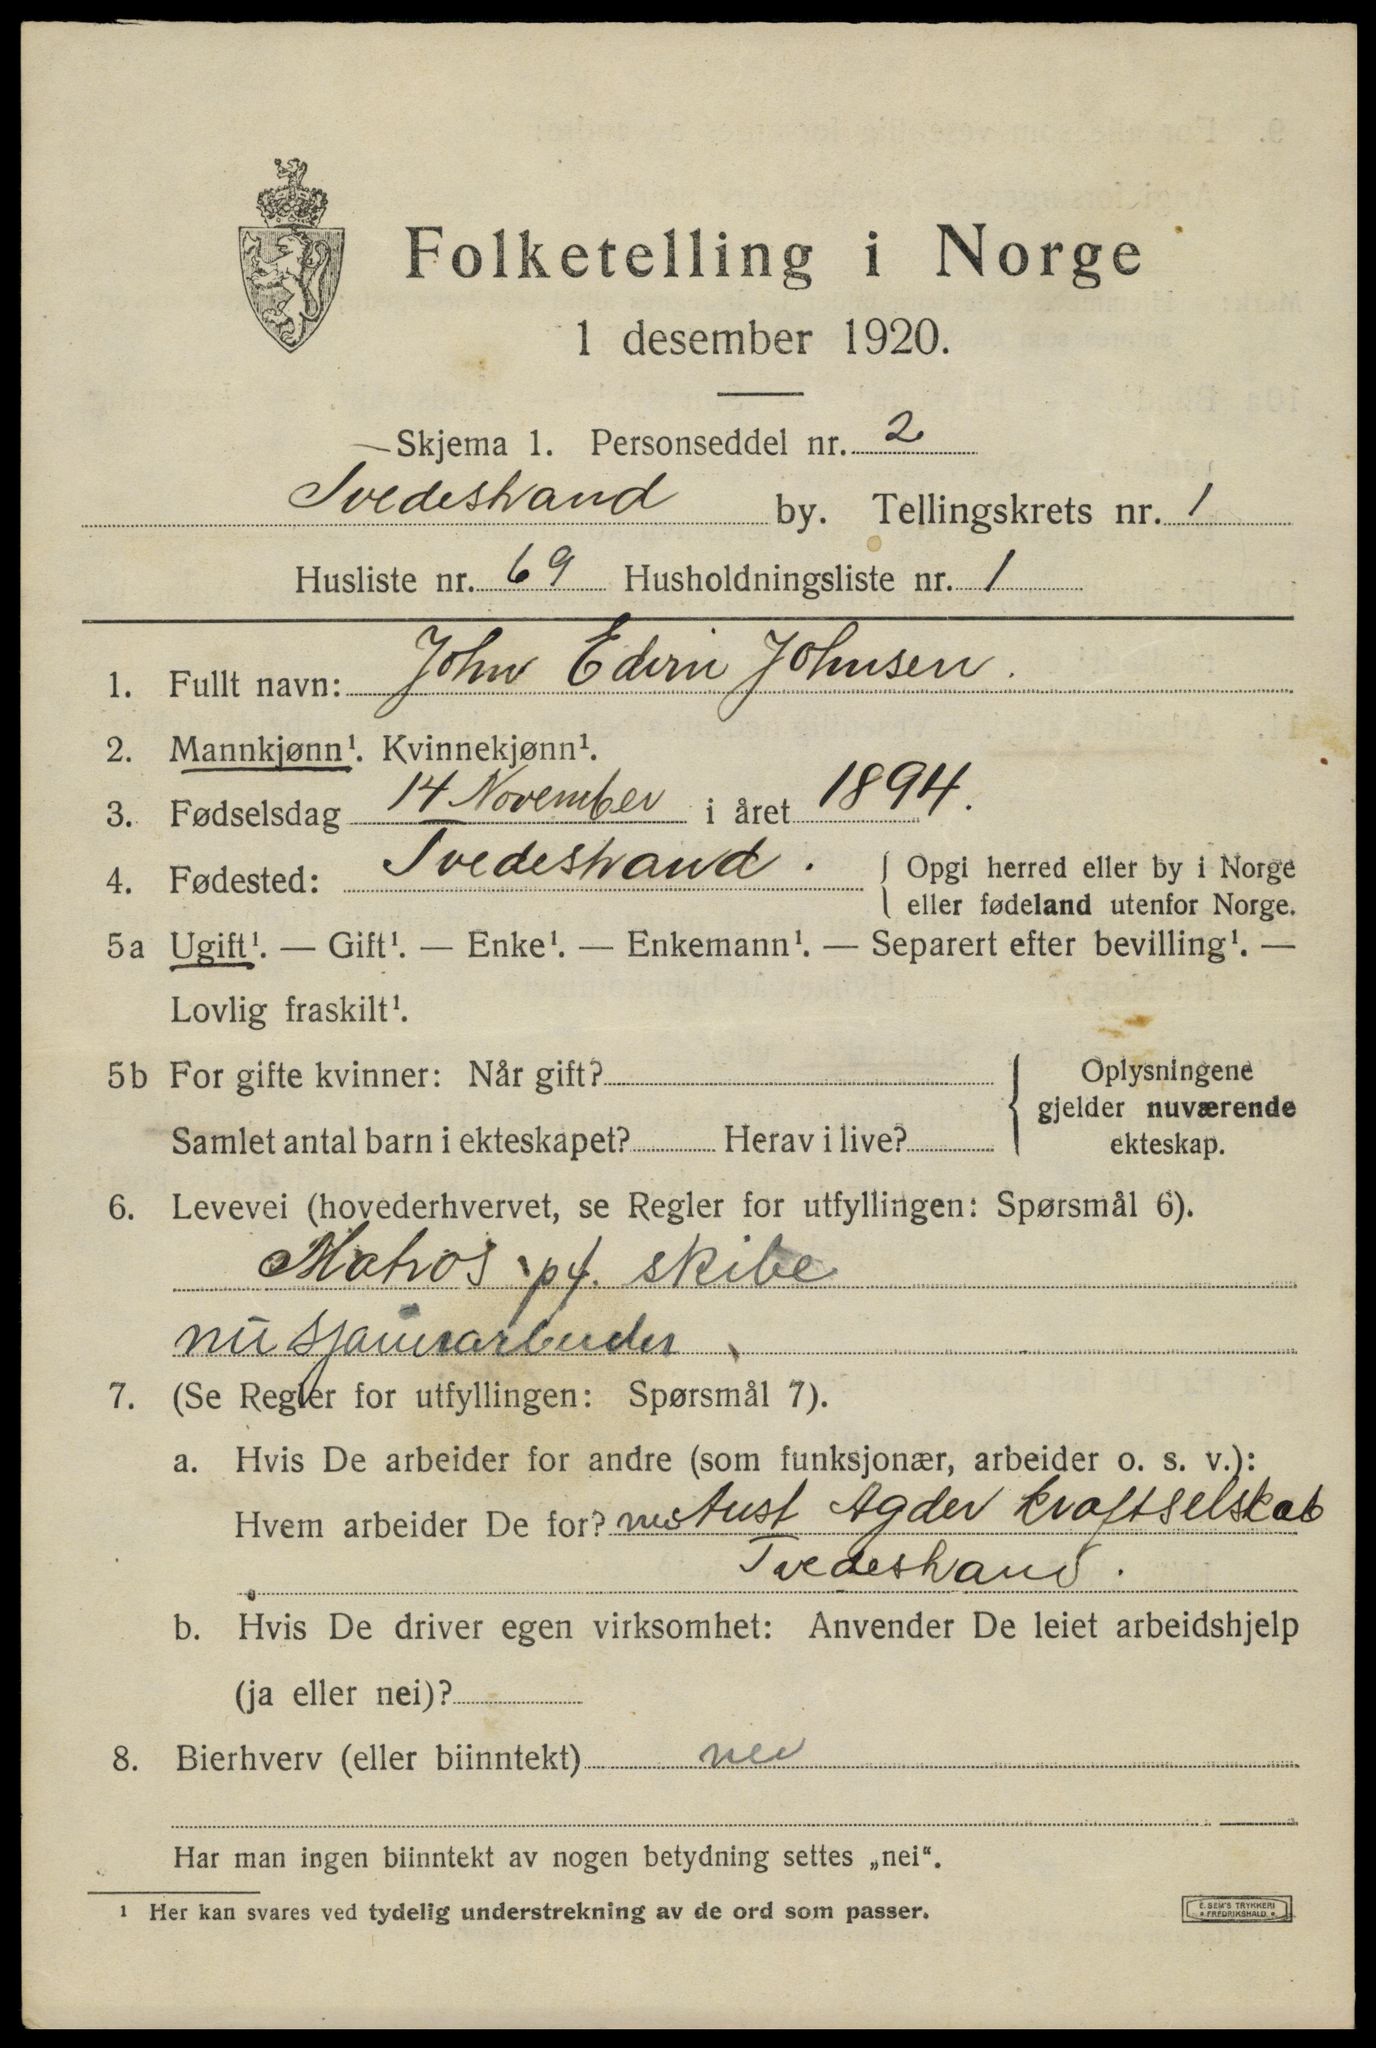 Folketelling i Norge
1 desember 1920.
Skjema 1. Personseddel nr. 2
Tvedestrand by. Tellingskrets nr. 1
Husliste nr. 69 Husholdningsliste nr. 1
1. Fullt navn: John Edvin Johnsen.
2. Mannkjønn¹. Kvinnekjønn¹.
3. Fødselsdag 14 November i året 1894.
4. Fødested: Tvedestrand. { Opgi herred eller by i Norge
eller fødeland utenfor Norge.
5a Ugift¹. — Gift¹. — Enke¹. — Enkemann¹. — Separert efter bevilling¹. —
Lovlig fraskilt¹.
5b For gifte kvinner: Når gift? { Oplysningene
gjelder nuværende
Samlet antal barn i ekteskapet? Herav i live? ekteskap.
6. Levevei (hovederhvervet, se Regler for utfyllingen: Spørsmål 6).
Matros skibe
nu
7. (Se Regler for utfyllingen: Spørsmål 7).
a. Hvis De arbeider for andre (som funksjonær, arbeider o. s. v.):
Hvem arbeider De for? Aust Agder kraftselskab
Tvedestrand.
b. Hvis De driver egen virksomhet: Anvender De leiet arbeidshjelp
(ja eller nei)?
8. Bierhverv (eller biinntekt) nei
Har man ingen biinntekt av nogen betydning settes „nei“.
¹ Her kan svares ved tydelig understrekning av de ord som passer.
E. SEM'S TRYKKERI
FREDRIKSHALD.